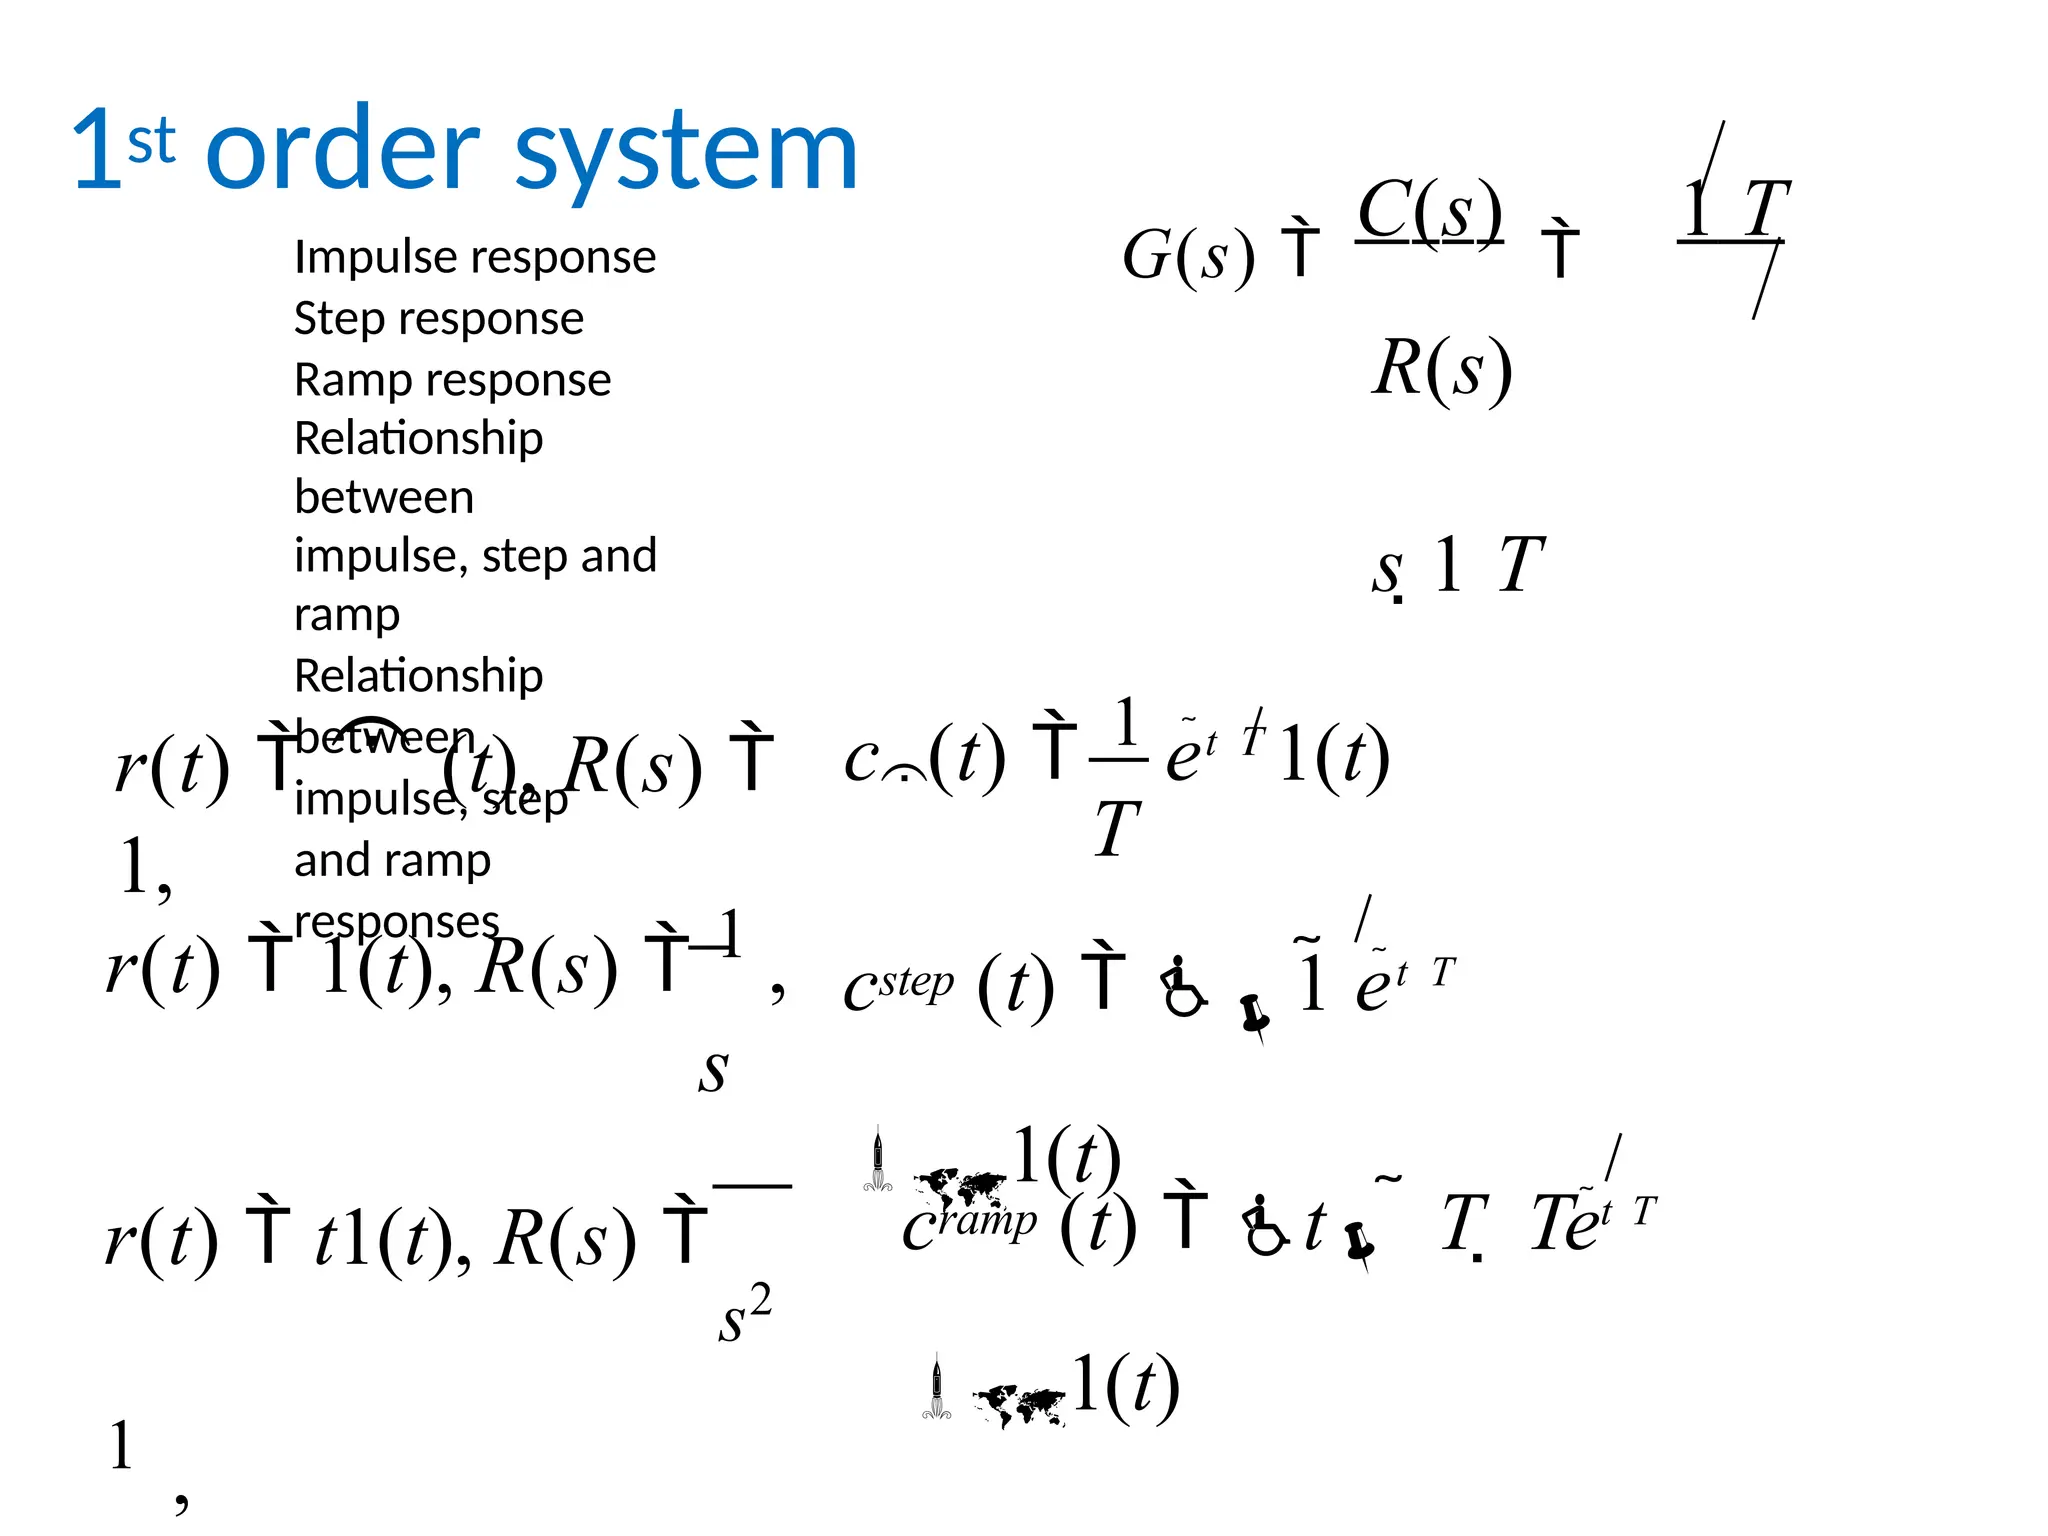 1st order system
Impulse response
Step response
Ramp response
Relationship
between
impulse, step and
ramp
Relationship
between
impulse, step
and ramp
responses
G(s) Ȉ C(s) Ȉ 1/T
R(s)
s 1 T
r(t) Ȉ (t), R(s) Ȉ
1,
c (t) Ȉ 1 e˜t/T 1(t)
T
r(t) Ȉ 1(t), R(s) Ȉ 1 ,
s
cstep (t) Ȉ ♿ 1 ˜ e˜t/T
1(t)
r(t) Ȉ t1(t), R(s) Ȉ
s²
1 ,
cramp (t) Ȉ ♿ t ˜ T. Te˜t/T
1(t)